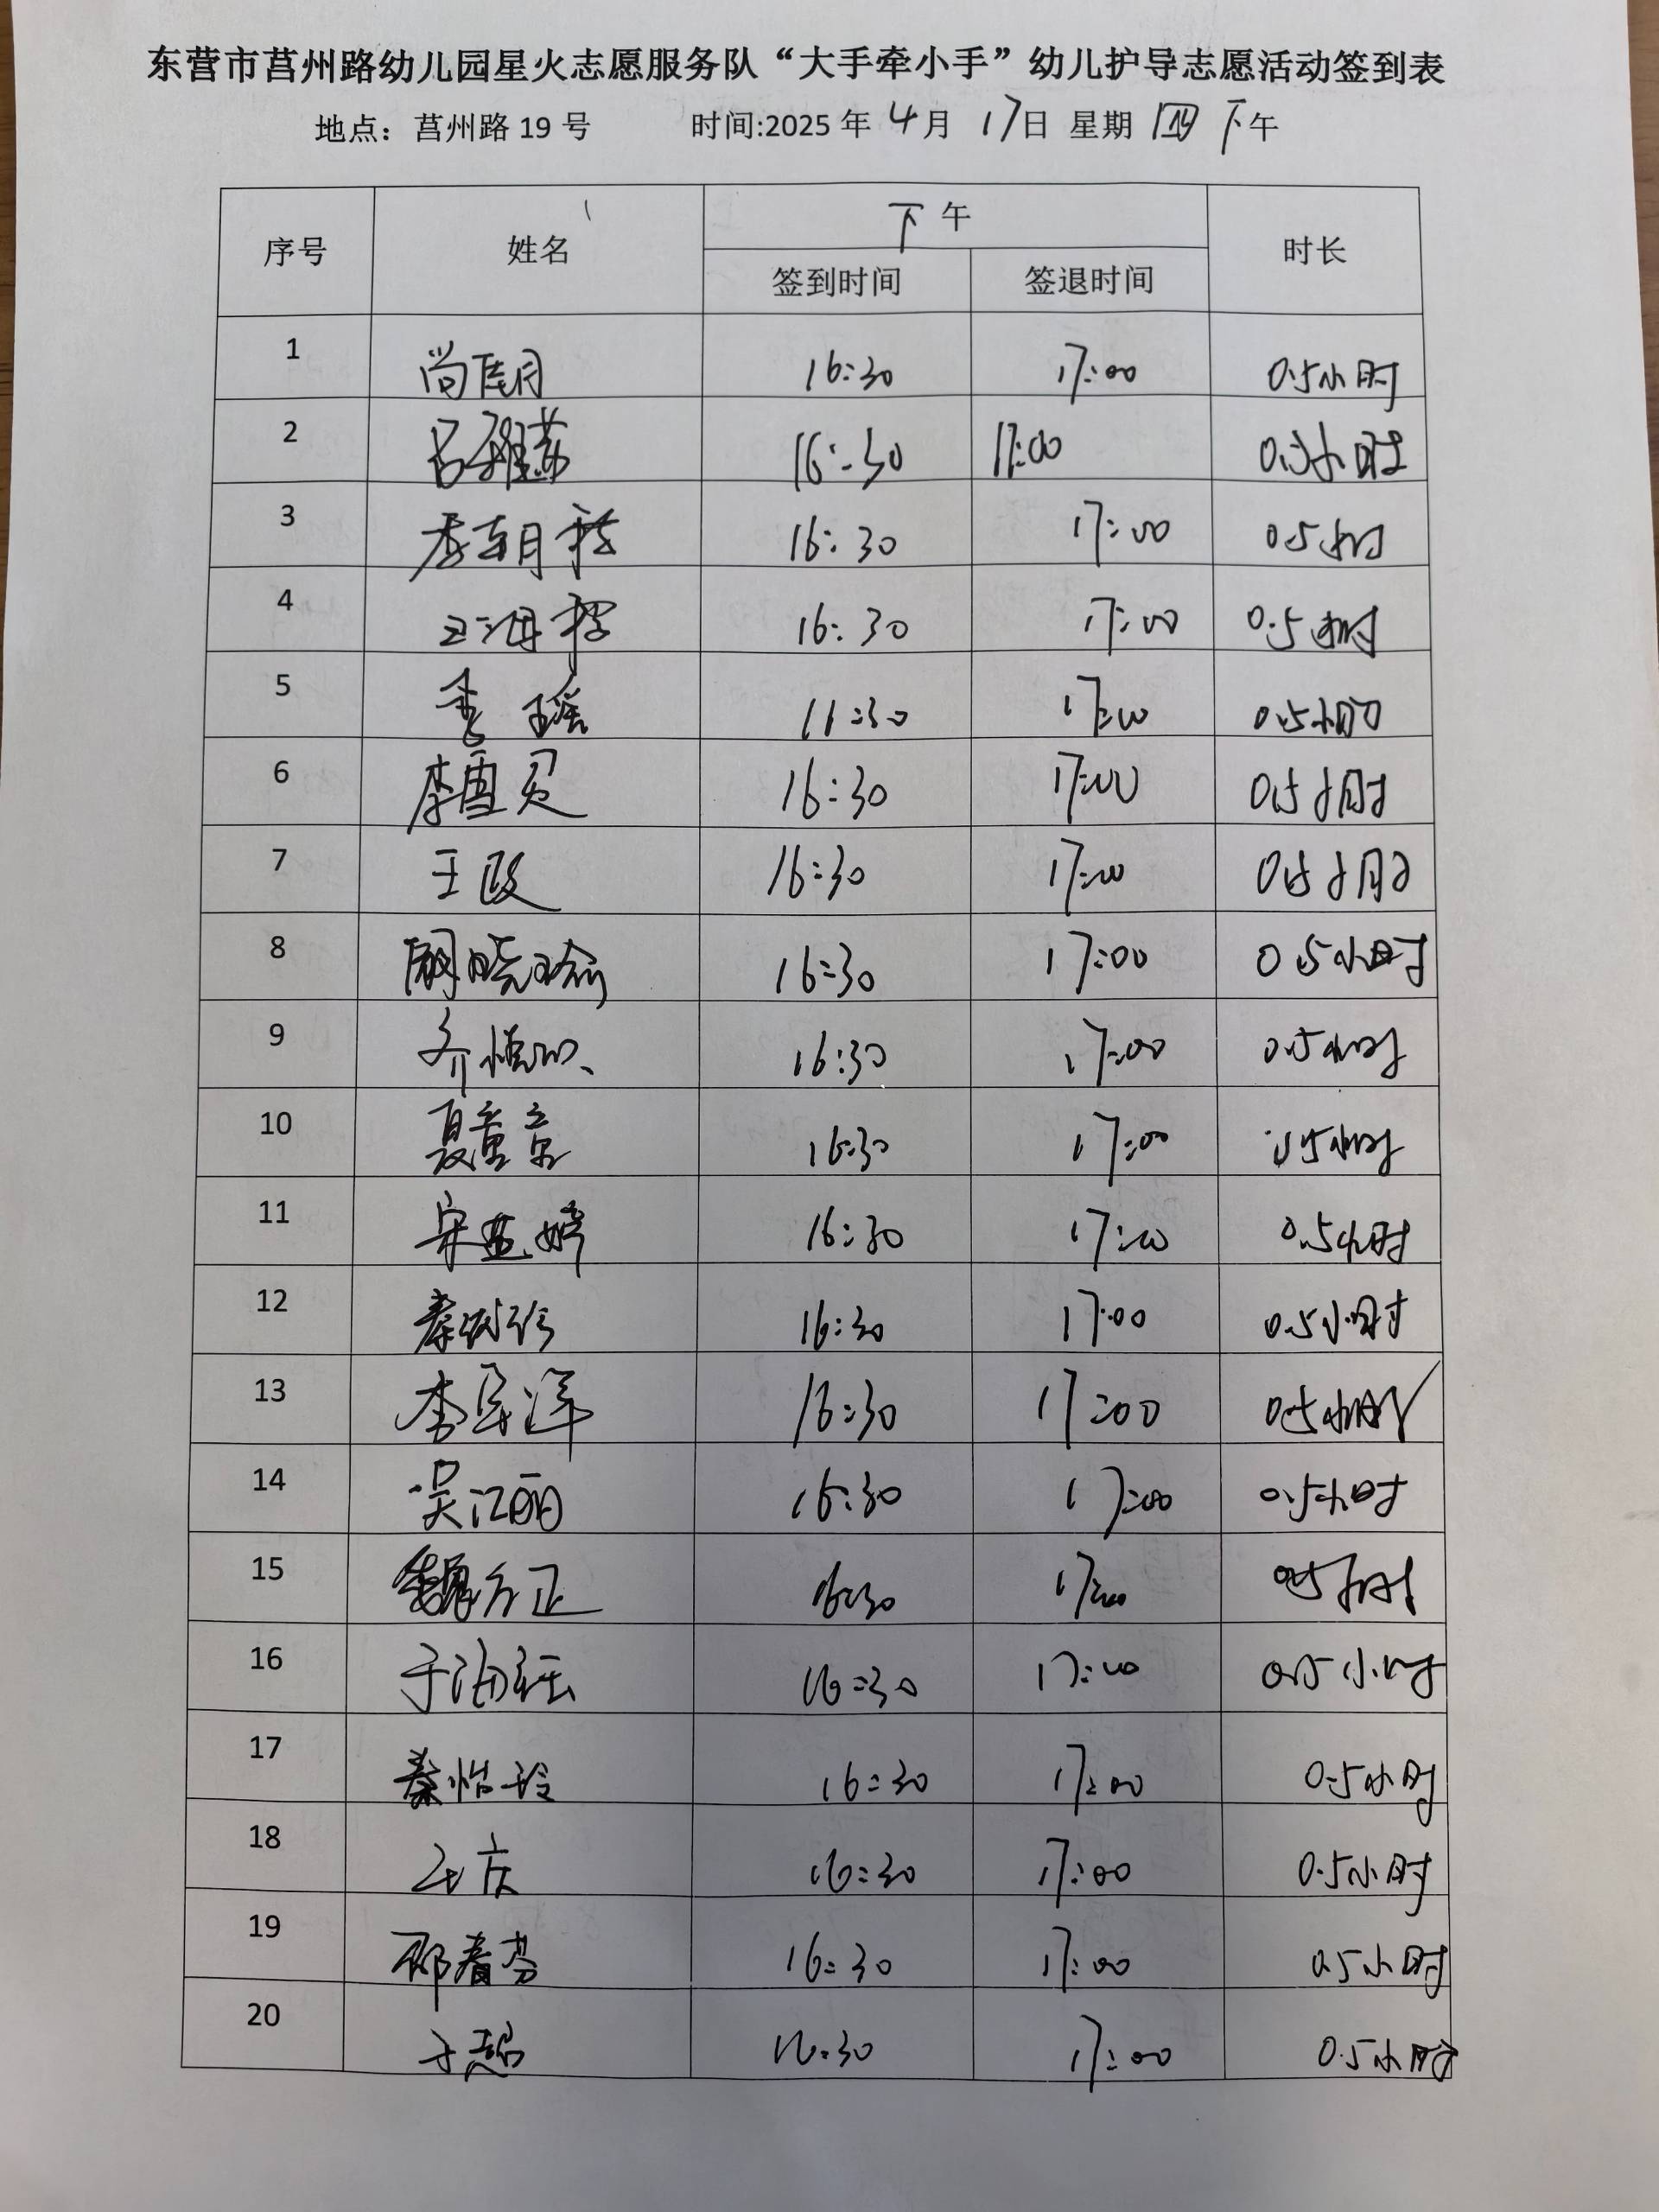 东营市莒州路幼儿园星火志愿服务队“大手牵小手”幼儿护导志愿活动签到表
地点：莒州路 19 号 时间:2025 年 4 月 17 日 星期 四 下午
序号 姓名 下午 时长
签到时间 签退时间
1 尚佳月 16:30 17:00 0.5小时
2 16:30 17:00 0.5小时
3 16:30 17:00 0.5小时
4 16:30 17:00 0.5小时
5 李瑶 16:30 17:00 0.5小时
6 李雪贝 16:30 17:00 0.5小时
7 王政 16:30 17:00 0.5小时
8 16:30 17:00 0.5小时
9 16:30 17:00 0.5小时
10 夏童童 16:30 17:00 0.5小时
11 16:30 17:00 0.5小时
12 16:30 17:00 0.5小时
13 16:30 17:00 0.5小时
14 吴江丽 16:30 17:00 0.5小时
15 魏方正 16:30 17:00 0.5小时
16 16:30 17:00 0.5小时
17 秦怡玲 16:30 17:00 0.5小时
18 16:30 17:00 0.5小时
19 邵春芬 16:30 17:00 0.5小时
20 16:30 17:00 0.5小时